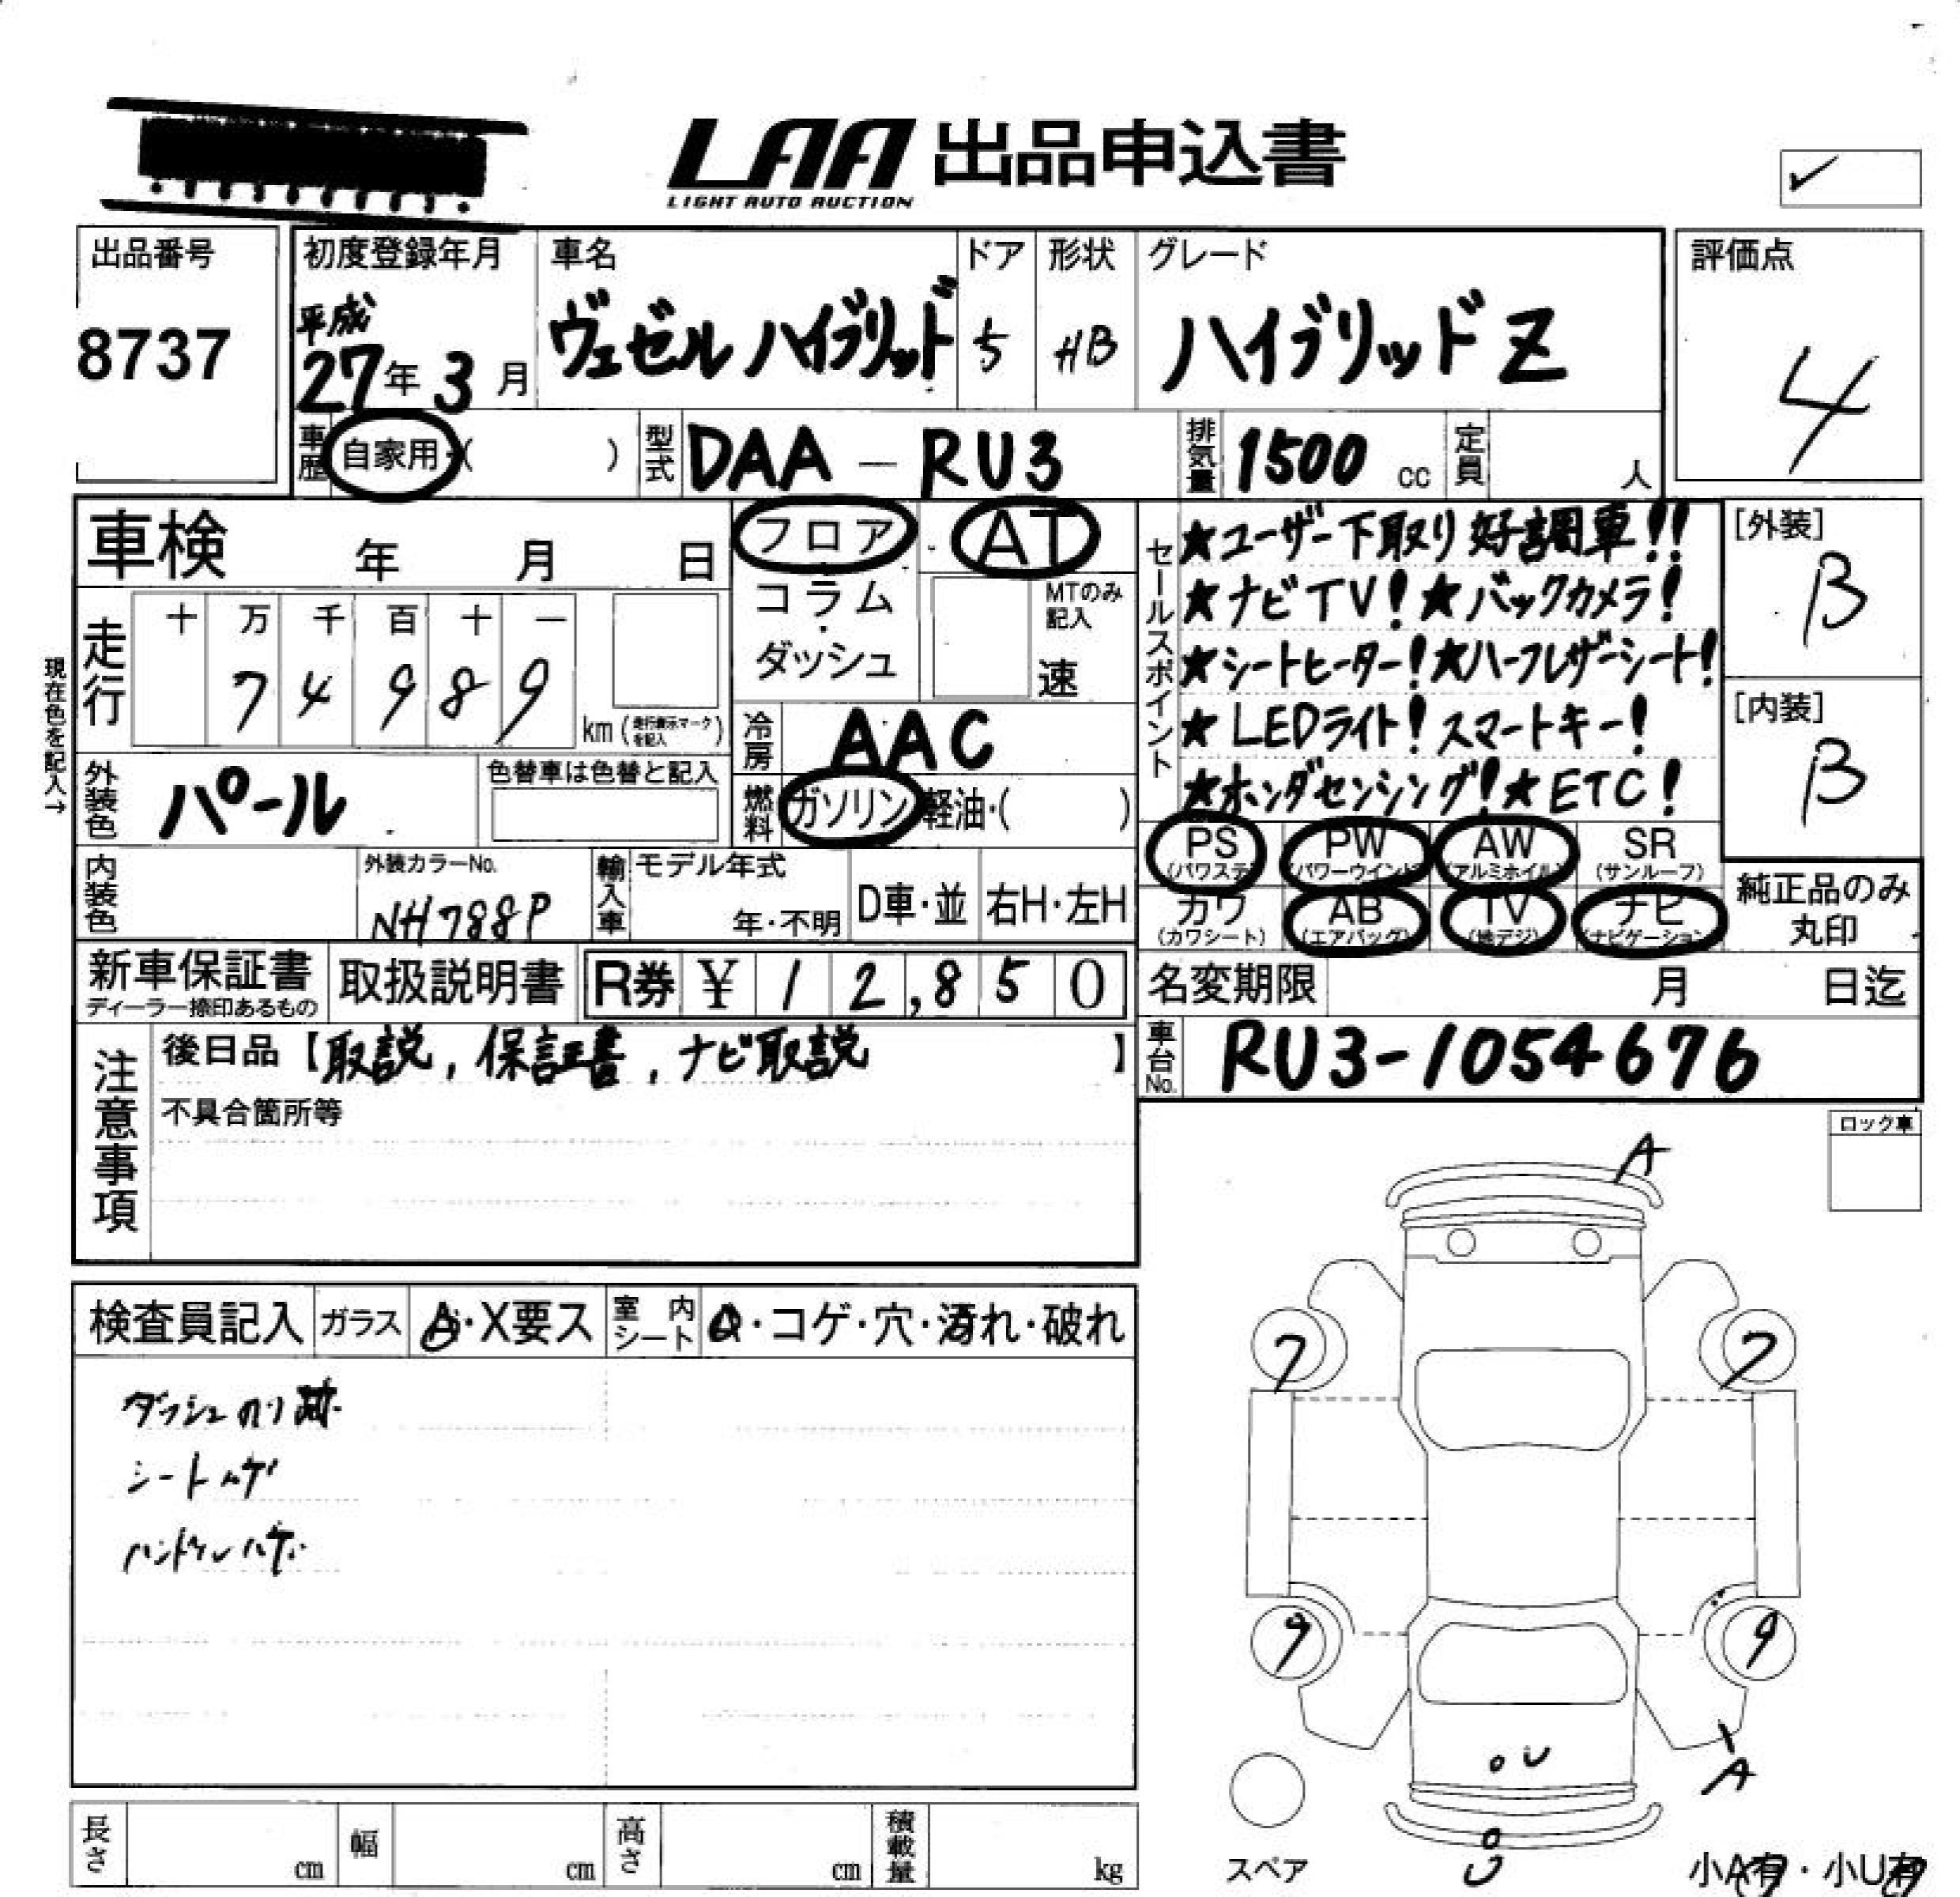 LAA 出品申込書
LIGHT AUTO AUCTION
✓
出品番号
8737
初度登録年月
平成
27年 3月
車名
ヴェゼル ハイブリッド
ドア
5
形状
HB
グレード
ハイブリッド Z
評価点
4
車歴 自家用・( )
型式 DAA - RU3
排気量 1500 cc
定員 人
車検 年 月 日
フロア・コラム・ダッシュ
AT
MTのみ記入
速
走行
十 万 千 百 十 一
7 4 9 8 9
km(走行表示マークを記入)
現在色を記入→
冷房 AAC
外装色 パール
色替車は色替と記入
燃料 ガソリン・軽油・( )
内装色
外装カラーNo.
NH788P
輸入車
モデル年式
年・不明
D車・並
右H・左H
セールスポイント
★ユーザー下取り 好調車!!
★ナビTV! ★バックカメラ!
★シートヒーター! ★ハーフレザーシート!
★LEDライト! スマートキー!
★ホンダセンシング! ★ETC!
[外装]
B
[内装]
B
PS (パワステ)
PW (パワーウインド)
AW (アルミホイル)
SR (サンルーフ)
カワ (カワシート)
AB (エアバッグ)
TV (地デジ)
ナビ (ナビゲーション)
純正品のみ
丸印
新車保証書
ディーラー捺印あるもの
取扱説明書
R券 ¥ 12,850
名変期限 月 日迄
注意事項
後日品【取説, 保証書, ナビ取説】
不具合箇所等
車台No. RU3-1054676
ロック車
検査員記入
ガラス A・X要ス
室内シート
・コゲ・穴・汚れ・破れ
ダッシュのり跡
シート
ハンドルハゲ
A
7 7
9 9
U
A
U
スペア
小A有・小U有
長さ cm
幅 cm
高さ cm
積載量 kg